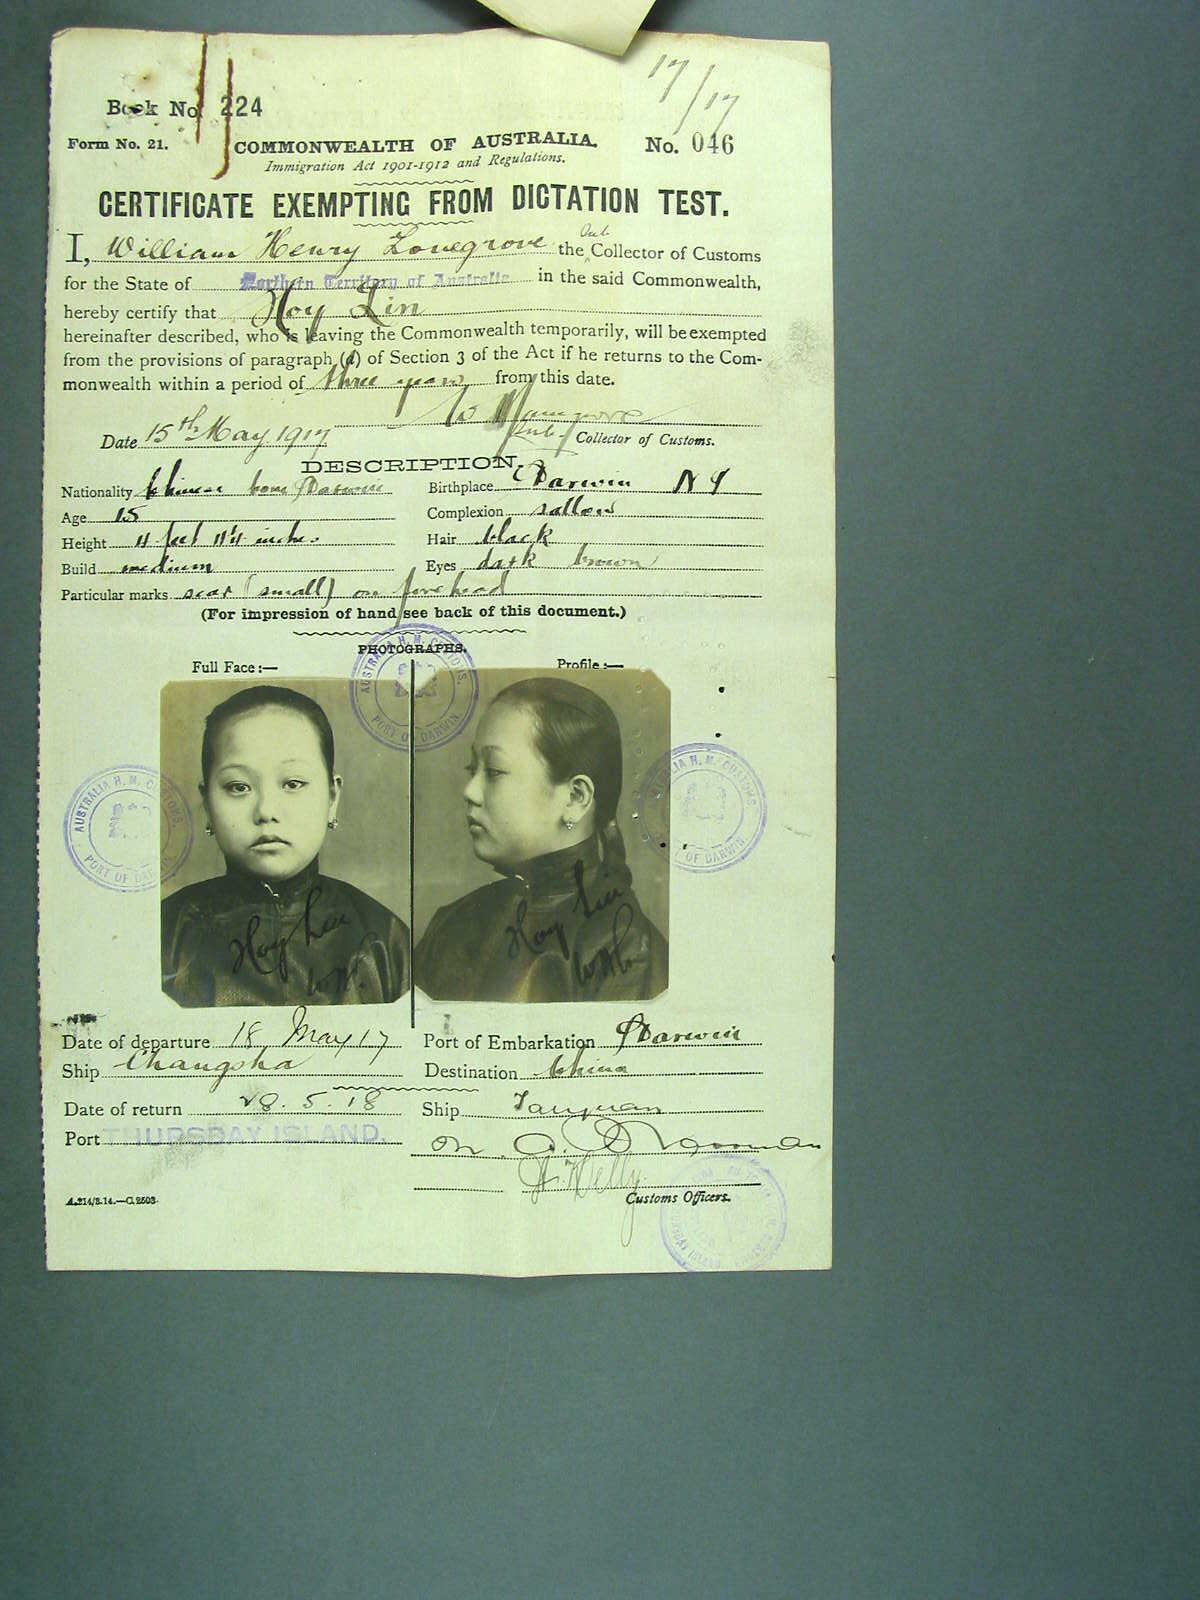 17/17
Book No. 224
Form No. 21. COMMONWEALTH OF AUSTRALIA. No. 046
Immigration Act 1901-1912 and Regulations.
CERTIFICATE EXEMPTING FROM DICTATION TEST.
I, William Henry Lovegrove the Sub Collector of Customs
for the State of Northern Territory of Australia in the said Commonwealth,
hereby certify that Hoy Lin
hereinafter described, who is leaving the Commonwealth temporarily, will be exempted
from the provisions of paragraph (a) of Section 3 of the Act if he returns to the Com-
monwealth within a period of three years from this date.
Date 15th May 1917 Sub Collector of Customs.
DESCRIPTION.
Nationality Chinese born Darwin Birthplace Darwin NT
Age 15 Complexion sallow
Height 4 feet 11¼ inches Hair black
Build medium Eyes dark brown
Particular marks scar (small) on forehead
(For impression of hand see back of this document.)
PHOTOGRAPHS.
Full Face:— Profile:—
AUSTRALIA H. M. CUSTOMS. PORT OF DARWIN
AUSTRALIA H. M. CUSTOMS. PORT OF DARWIN
AUSTRALIA H. M. CUSTOMS. PORT OF DARWIN
Hoy Lin Hoy Lin
WHL WHL
Date of departure 18 May 17 Port of Embarkation Darwin
Ship Changsha Destination China
Date of return 28.5.18 Ship Taiyuan
Port THURSDAY ISLAND.
Customs Officers.
A.214/3.14.—C.2503.
THURSDAY ISLAND